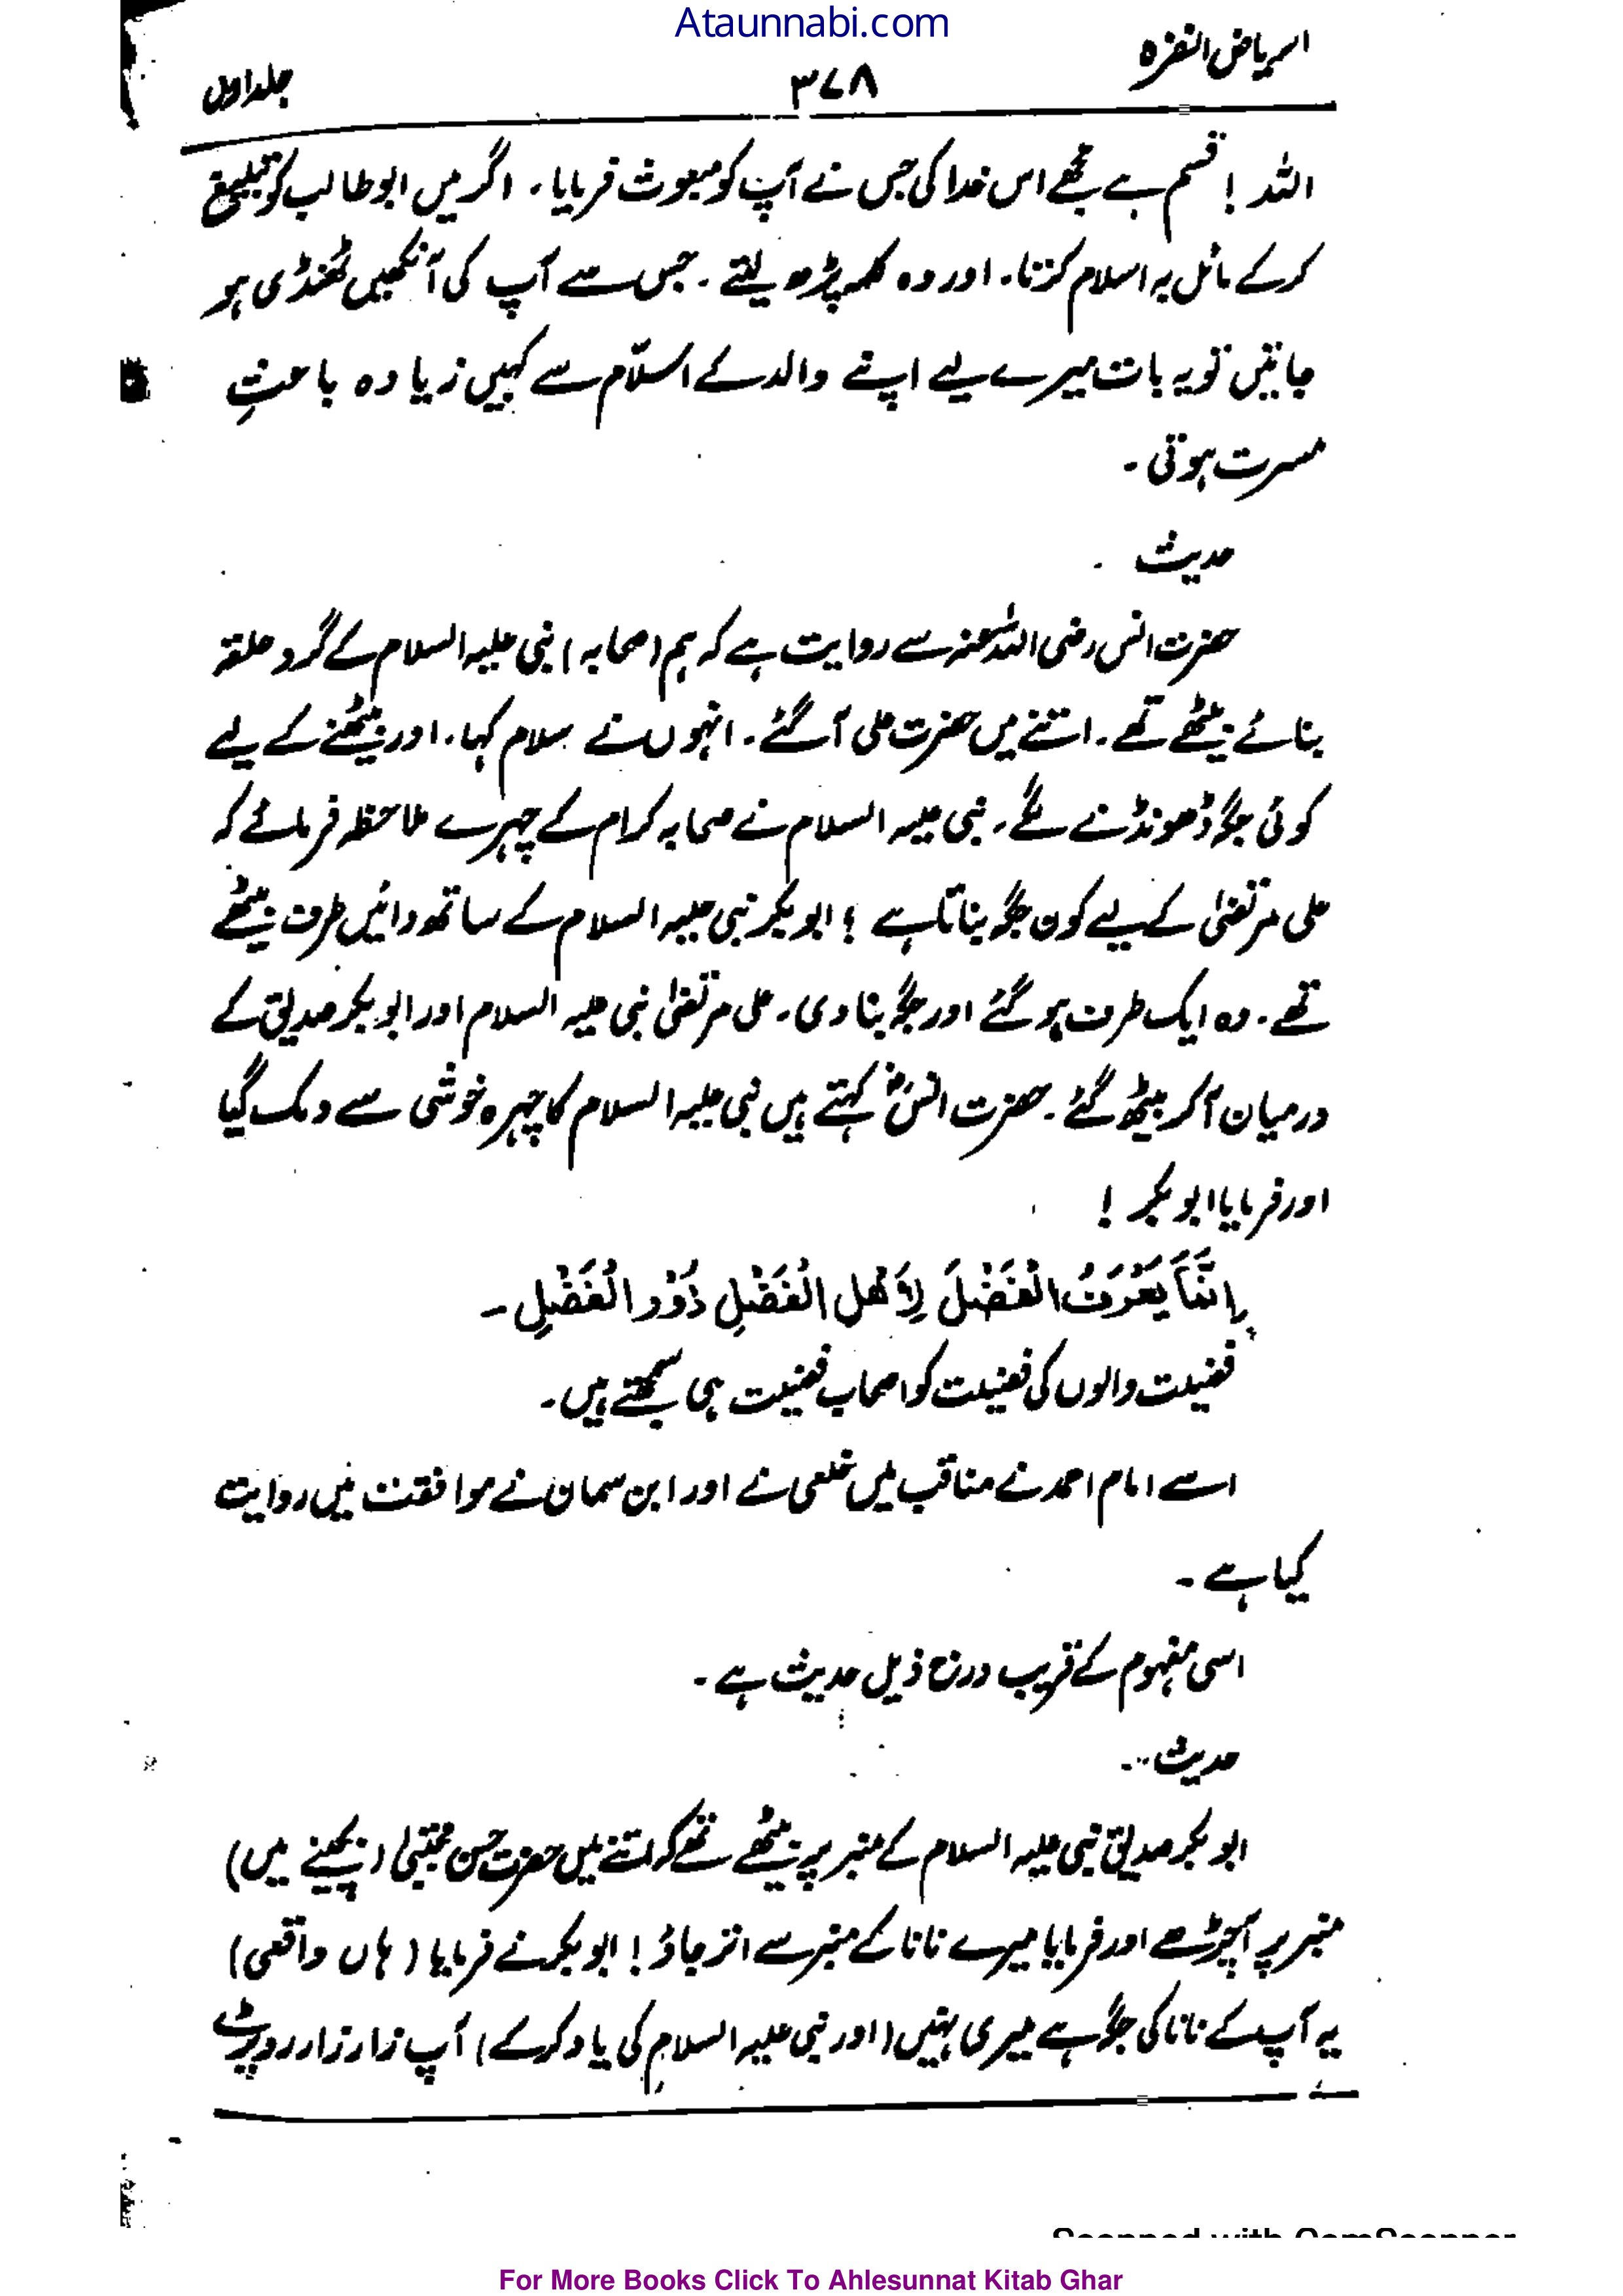 Ataunnabi.com
الریاض النضرہ
۳۷۸
جلد اول
اللہ ! قسم ہے مجھے اس خدا کی جس نے آپ کو مبعوث فرمایا۔ اگر میں ابو طالب کو تبلیغ
کرکے مائل بہ اسلام کرتا۔ اور وہ کلمہ پڑھ لیتے ۔ جس سے آپ کی آنکھیں ٹھنڈی ہو
جاتیں تو یہ بات میرے لیے اپنے والد کے اسلام سے کہیں زیادہ باعثِ
مسرت ہوتی ۔
حدیث ۔
حضرت انس رضی اللہ عنہ سے روایت ہے کہ ہم (صحابہ) نبی علیہ السلام کے گرد حلقہ
بنائے بیٹھے تھے ۔ اتنے میں حضرت علی آ گئے ۔ انہوں نے سلام کہا ۔ اور بیٹھنے کے لیے
کوئی جگہ ڈھونڈنے لگے ۔ نبی علیہ السلام نے صحابہ کرام کے چہرے ملاحظہ فرمائے کہ
علی مرتضیٰ کے لیے کون جگہ بناتا ہے ؟ ابوبکر نبی علیہ السلام کے ساتھ دائیں طرف بیٹھے
تھے ۔ وہ ایک طرف ہو گئے اور جگہ بنا دی ۔ علی مرتضیٰ نبی علیہ السلام اور ابوبکر صدیق کے
درمیان آکر بیٹھ گئے ۔ حضرت انسؓ کہتے ہیں نبی علیہ السلام کا چہرہ خوشی سے دمک گیا
اور فرمایا ابوبکر !
اِنَّمَا یَعْرِفُ الْفَضْلَ لِاَھْلِ الْفَضْلِ ذَوُو الْفَضْلِ ۔
فضیلت والوں کی فضیلت کو اصحاب فضیلت ہی سمجھتے ہیں ۔
اسے امام احمد نے مناقب میں خلعی نے اور ابن سمان نے موافقت میں روایت
کیا ہے ۔
اسی مفہوم کے قریب درج ذیل حدیث ہے ۔
حدیث ۔
ابوبکر صدیق نبی علیہ السلام کے منبر پر بیٹھے تھے کہ اتنے میں حضرت حسن مجتبیٰ (بچپنے میں)
منبر پر آچڑھے اور فرمایا میرے نانا کے منبر سے اتر جاؤ ! ابوبکر نے فرمایا (ہاں واقعی)
یہ آپ کے نانا کی جگہ ہے میری نہیں (اور نبی علیہ السلام کی یاد کرکے) آپ زار زار رو پڑے
Scanned with CamScanner
For More Books Click To Ahlesunnat Kitab Ghar